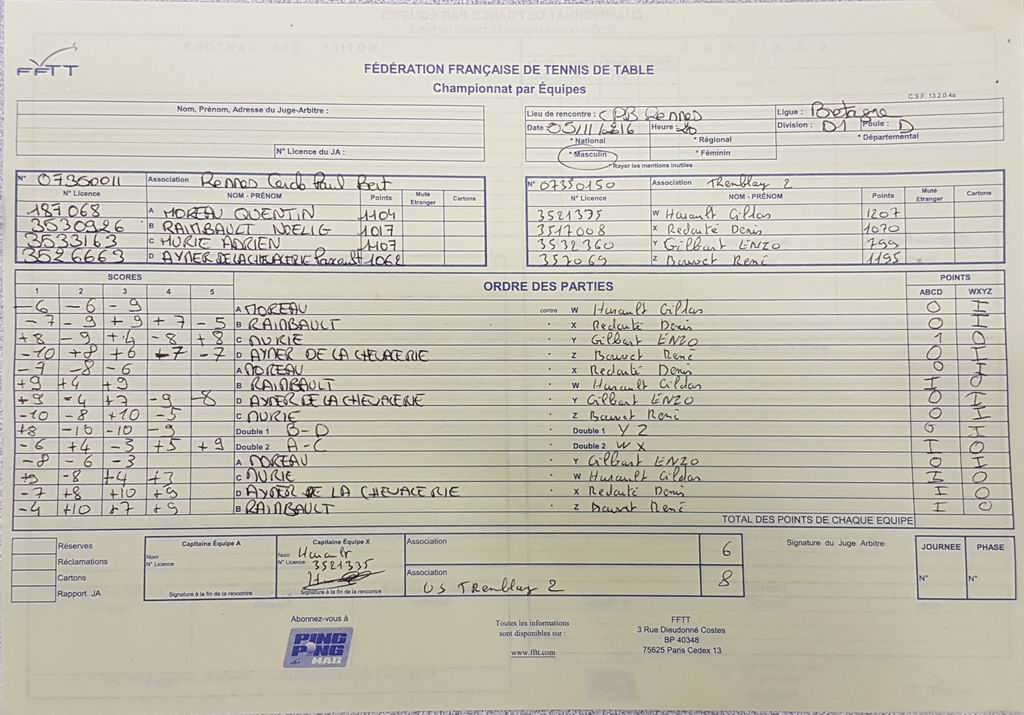 FFTT
FÉDÉRATION FRANÇAISE DE TENNIS DE TABLE
Championnat par Équipes
C.S.F. 13.2.0.4a
Nom, Prénom, Adresse du Juge-Arbitre :
N° Licence du JA :
Lieu de rencontre : CPB Rennes
Ligue : Bretagne
Date 05/11/2016 Heure : 20
Division : D1 Poule : D
* National * Régional * Départemental
* Masculin * Féminin
*Rayer les mentions inutiles
N° 07350011 Association Rennes Cercle Paul Bert
N° Licence NOM - PRÉNOM Points Muté Etranger Cartons
187068 A MOREAU QUENTIN 1104
3530926 B RAIMBAULT NOELIG 1017
3533163 C MURIE ADRIEN 1107
3526663 D AYMER DE LA CHEVALERIE 1062
N° 07350150 Association Tremblay 2
N° Licence NOM - PRÉNOM Points Muté Etranger Cartons
3521335 W Hurault Gildas 1207
3517008 X Redouté Denis 1070
3532360 Y Gilbert ENZO 799
357069 Z Bouvet René 1195
SCORES ORDRE DES PARTIES POINTS
1 2 3 4 5 ABCD WXYZ
-6 -6 -9 A MOREAU contre W Hurault Gildas 0 I
-7 -9 +9 +7 -5 B RAIMBAULT X Redouté Denis 0 I
+8 -9 +4 -8 +8 C MURIE Y Gilbert ENZO 1 0
-10 +8 +6 -7 -7 D AYMER DE LA CHEVALERIE Z Bouvet René 0 I
-7 -8 -6 A MOREAU X Redouté Denis 0 I
+9 +4 +9 B RAIMBAULT W Hurault Gildas I 0
+9 -4 +7 -9 -8 D AYMER DE LA CHEVALERIE Y Gilbert ENZO 0 I
-10 -8 +10 -5 C MURIE Z Bouvet René 0 I
+8 -10 -10 -9 Double 1 B-D Double 1 Y Z 0 I
-6 +4 -3 +5 +9 Double 2 A-C Double 2 W X I 0
-8 -6 -3 A MOREAU Y Gilbert ENZO 0 I
+9 -8 +4 +3 C MURIE W Hurault Gildas I 0
-7 +8 +10 +9 D AYMER DE LA CHEVALERIE X Redouté Denis I 0
-4 +10 +7 +9 B RAIMBAULT Z Bouvet René I 0
TOTAL DES POINTS DE CHAQUE EQUIPE
Réserves
Réclamations
Cartons
Rapport JA
Capitaine Équipe A
Nom
N° Licence
Signature à la fin de la rencontre
Capitaine Équipe X
Nom Hurault
N° Licence 3521335
Signature à la fin de la rencontre
Association 6
Association US Tremblay 2 8
Signature du Juge Arbitre
JOURNEE PHASE
N° N°
Abonnez-vous à
PING PONG MAG
Toutes les informations
sont disponibles sur :
www.fftt.com
FFTT
3 Rue Dieudonné Costes
BP 40348
75625 Paris Cedex 13